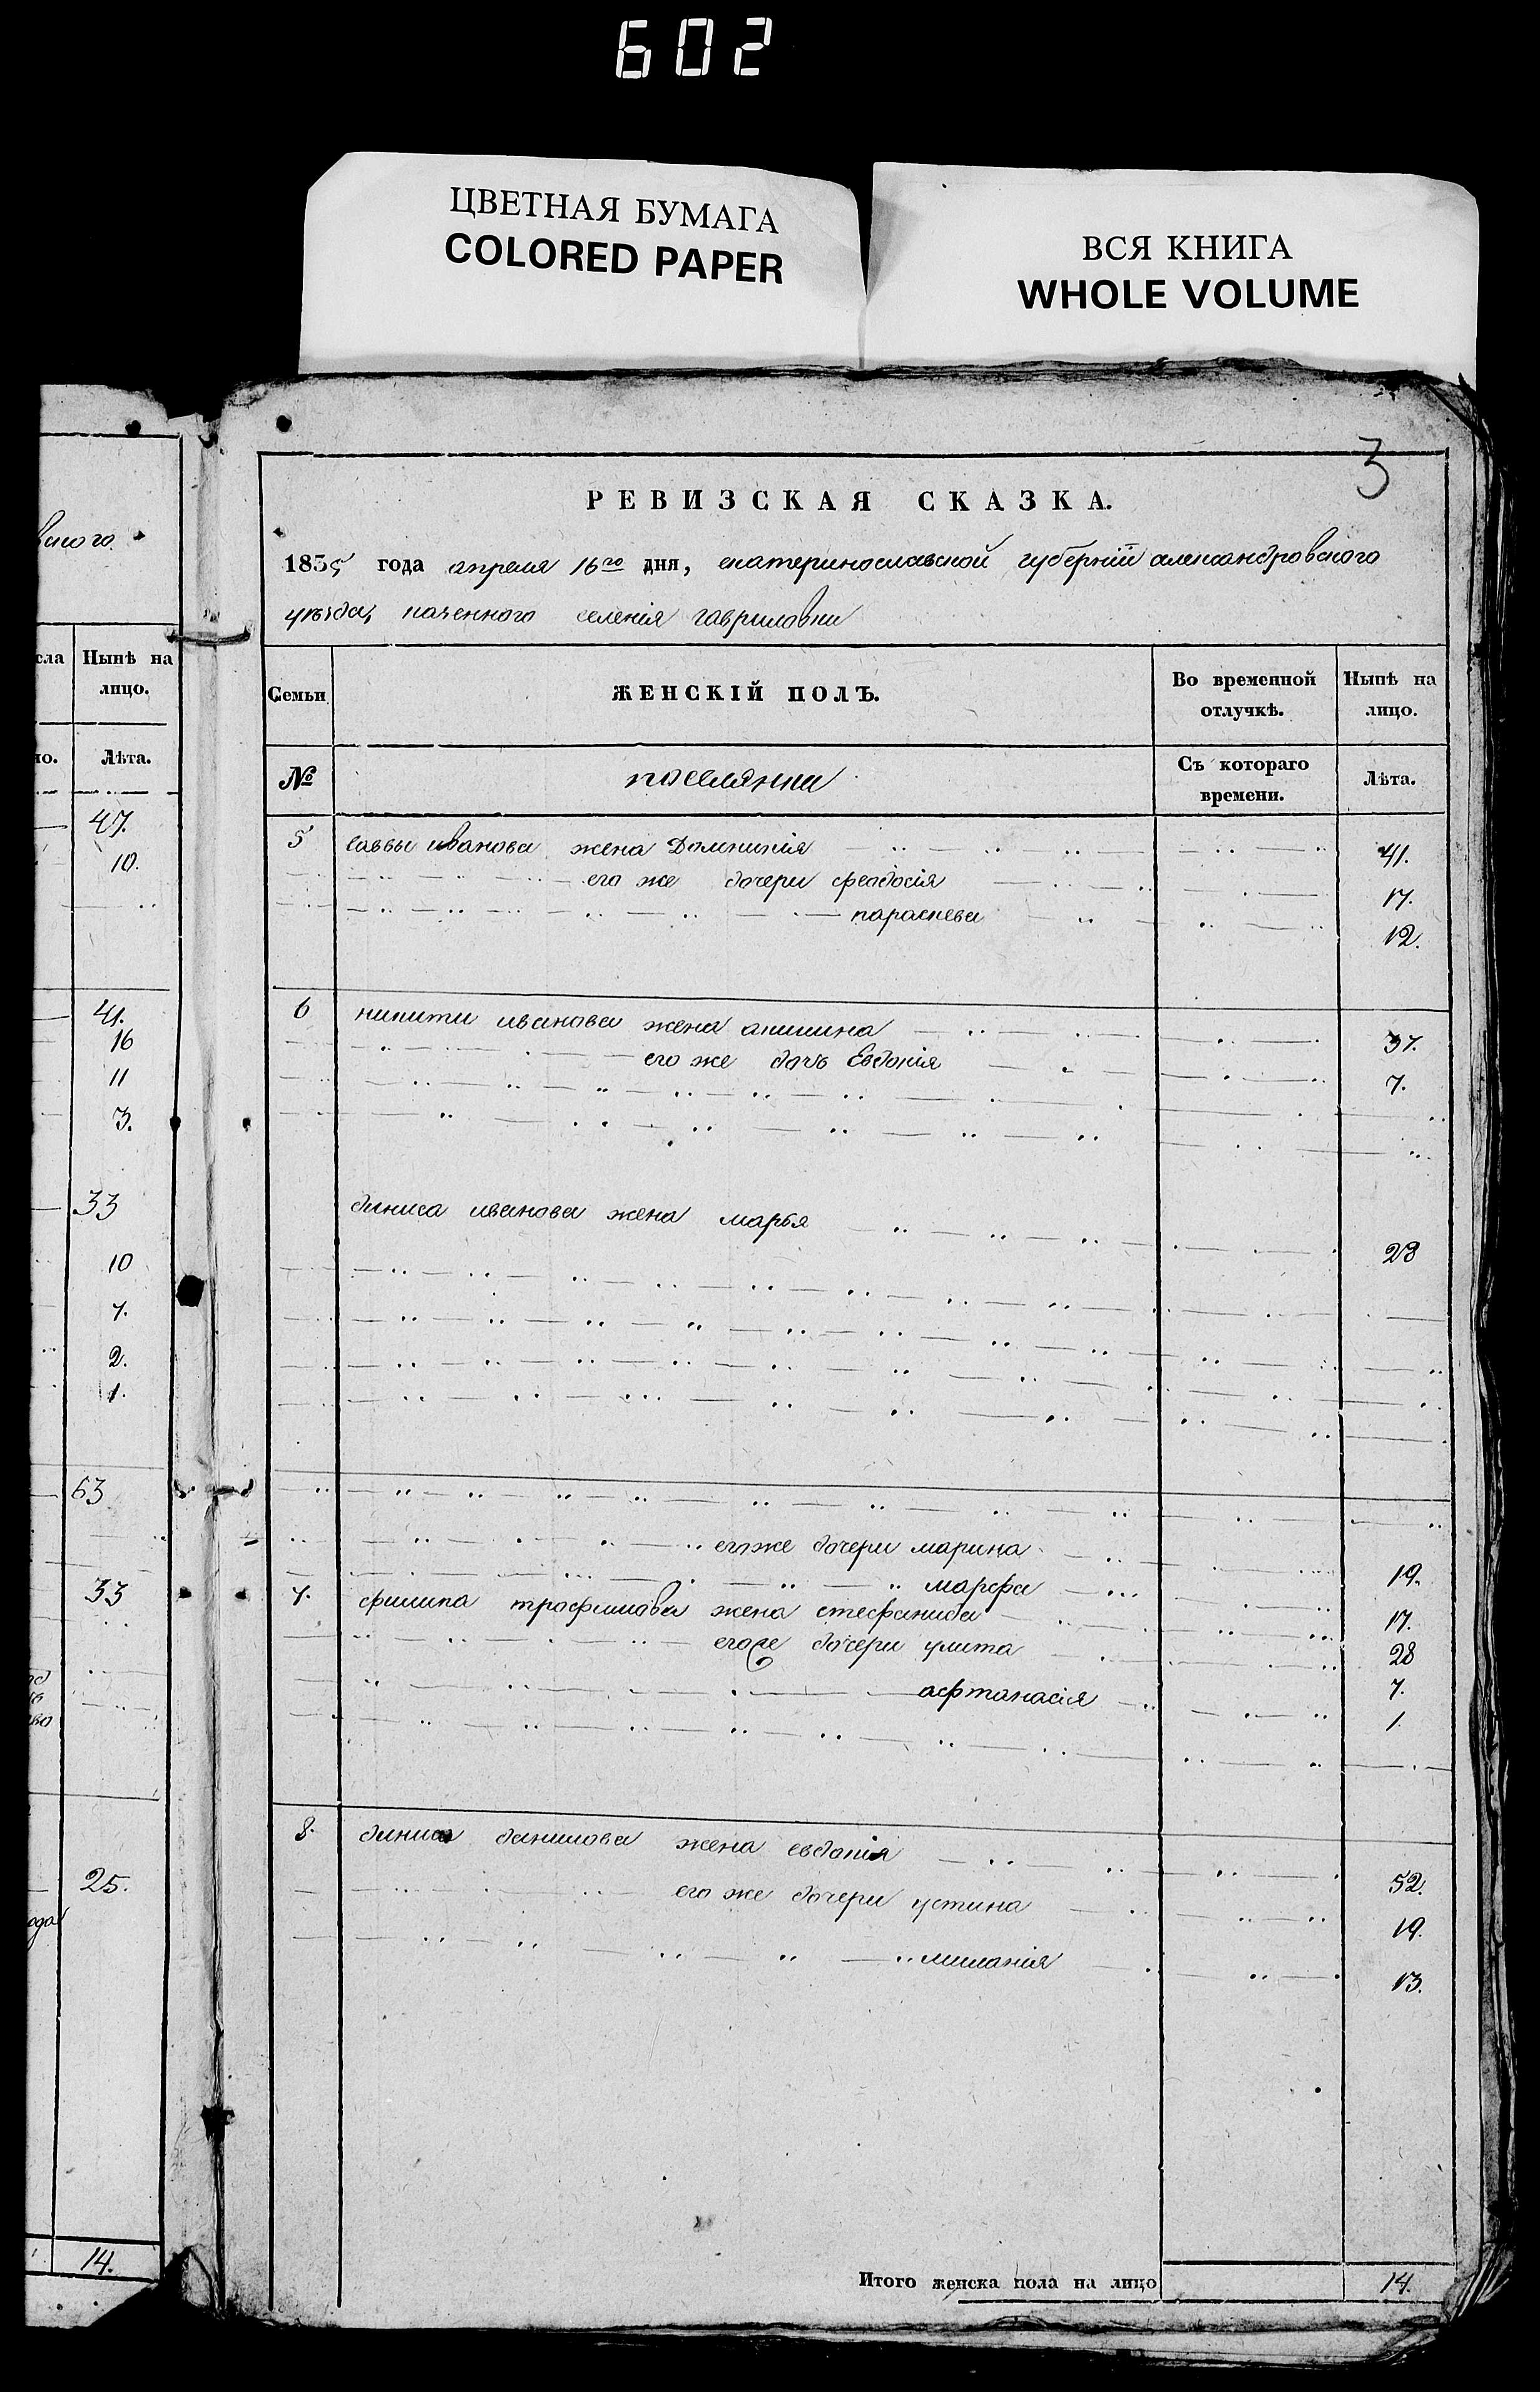 602
ЦВЕТНАЯ БУМАГА
COLORED PAPER
ВСЯ КНИГА
WHOLE VOLUME
3
РЕВИЗСКАЯ СКАЗКА.
1835 года апреля 16го дня, екатеринославской губерніи александровского
уезда, казенного селенія гавриловки
Семьи
ЖЕНСКІЙ ПОЛЪ.
Во временной отлучкѣ.
Нынѣ на лицо.
№
поселянки
Съ котораго времени.
Лѣта.
5 саввы иванова жена Домникія 41.
его же дочери феодосія 17.
параскева 12.
6 никити иванова жена акилина 37.
его же дочь Евдокія 7.
диниса иванова жена марья 28
его же дочери марина 19.
марфа 17.
7. филипа трофимова жена стефанида 28
его же дочери улита 7.
афтанасія 1.
8. диниса данилова жена евдокія 52.
его же дочери устина 19.
милания 13.
Итого женска пола на лицо 14.
сла
Нынѣ на
лицо.
но.
Лѣта.
47.
10.
41.
16
11
3.
33
10
7.
2.
1.
63
33
25.
14.